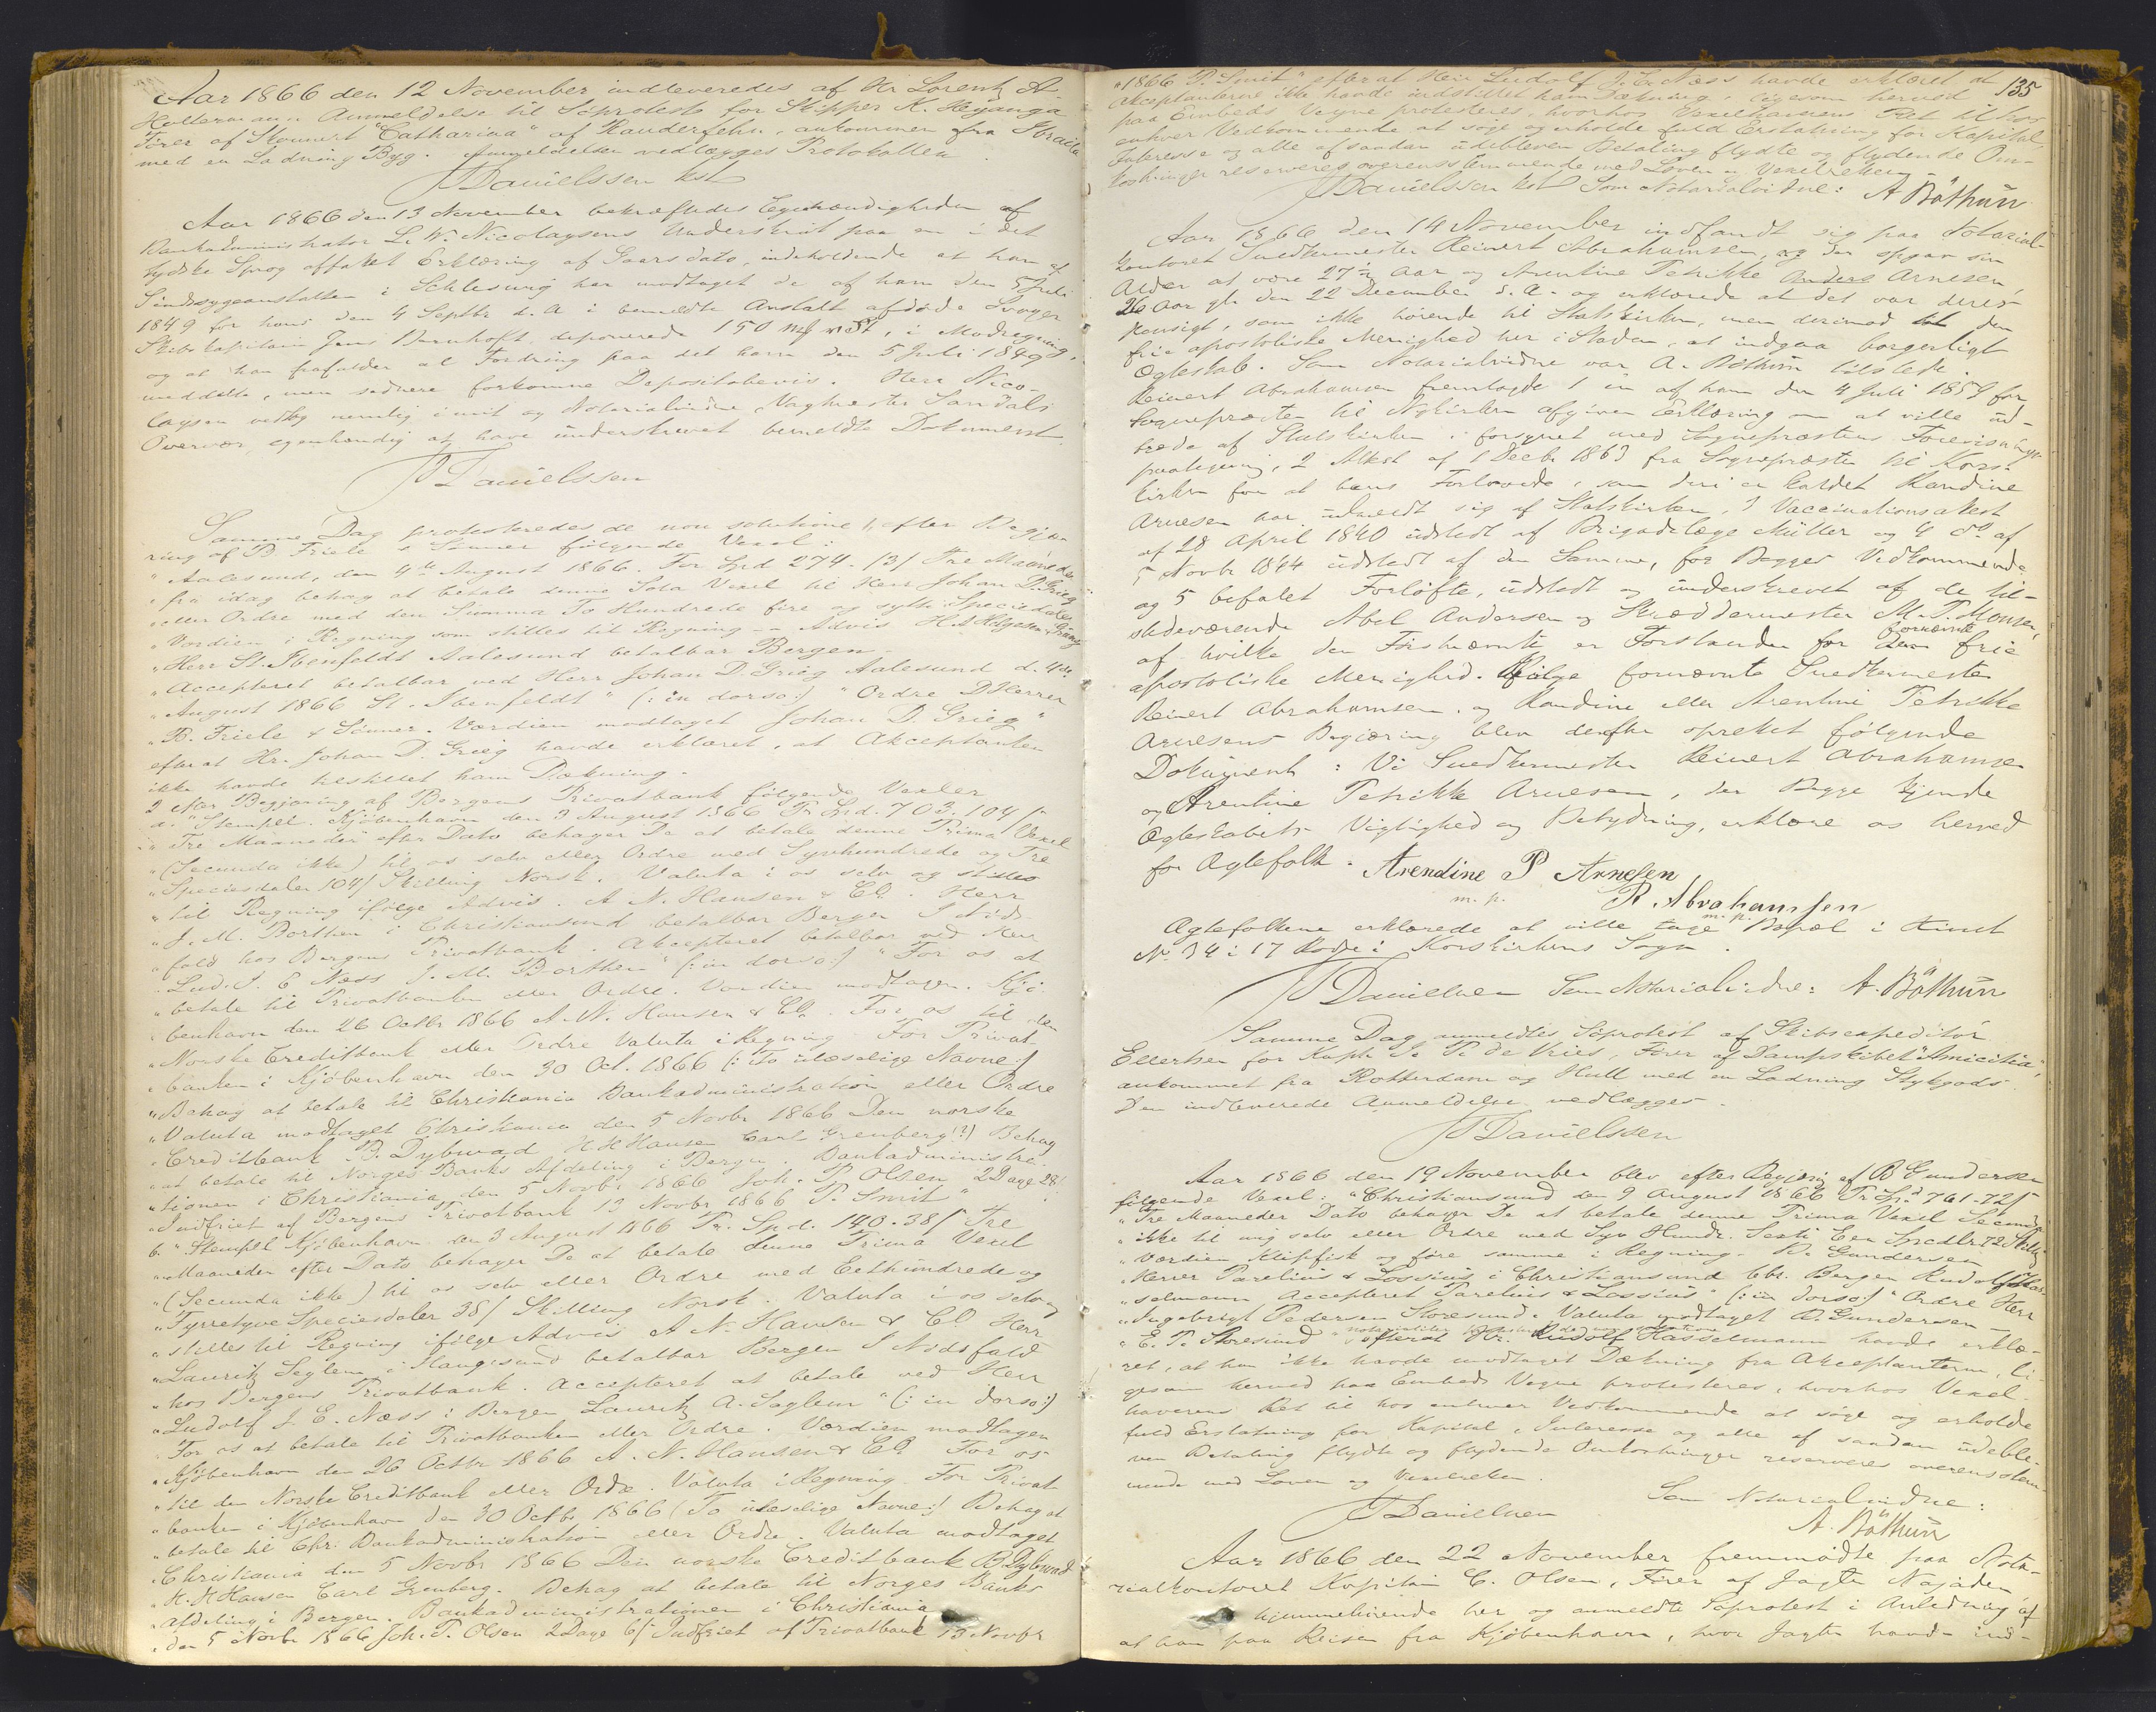 Aar 1866 den 12 November indleveredes af Hr Lorentz A.
Holtermann Anmeldelse til Söprotest for Skipper K. Heyanga
Förer af Skonnert "Catharina" af Rauderfehn, ankommen fra Ibraila
med en Ladning Byg. Anmeldelsen vedlægges Protokollen.
Danielssen kst
Aar 1866 den 13 November bekræftedes Egenhændigheden af
Bankadministrator L. W. Nicolaysens Underskrift paa en i det
tydske Sprog affattet Erklæring af Gaarsdato, indeholdende at han af
Sindssygeanstalten i Schleswig har modtaget de af ham den 5 Juli
1849 for hans den 4 Septbr d. A. i bemeldte Anstalt afdöde Svoger
Skibskapitain Jens deponerede 150 i Modregning,
og at han frafalder al Fordring paa det ham den 5 Juli 1849
meddelte, men sednere forkomne Depositobevis. Herr Nico-
laysen vedtog nemlig i mit og Notarialvidne, Vagtmester Sandals
Overvær, egenhændig at have underskrevet bemeldte Dokument.
Danielssen
Samme Dag protesteredes de non solutione 1, efter Begjæ-
ring af B. Friele & Sönner fölgende Vexel:
"Aalesund, den 4de August 1866. For Spd 274. /3/ Tre Maaneder
"fra idag behag at betale denne Sola Vexel til Herr Johan D. Grieg
"eller Ordre med den Summa To Hundrede fire og sytti Speciedaler
"Værdien i Regning som stilles til Regning - Advis H. A. Helgesen
"Herr St. Ibenfeldt Aalesund betalbar Bergen.
"Accepteret betalbar ved Herr Johan D. Grieg Aalesund d. 4de
"August 1866 St. Ibenfeldt" (: in dorso:) "Ordre DHerrer
"B. Friele & Sönner. Værdien modtaget Johan D. Grieg"
efterat Hr. Johan D. Grieg havde erklæret, at Akceptanten
ikke havde tilstillet ham Dækning.
2 efter Begjæring af Bergens Privatbank fölgende Vexler
a. "Stempel. Kjöbenhavn den 3 August 1866 Pr Spd. 703. 104/
"Tre Maaneder efter Dato behager De at betale denne Prima Vexel
"(Secunda ikke) til os selv eller Ordre med Syvhundrede og Tre
"Speciesdaler 104/ Skilling Norsk. Valuta i os selv og stilles
"til Regning ifölge Advis. A. N. Hansen & Co. Herr
"J. M. Borthen i Christiansund betalbar Bergen I Nöds
"fald hos Bergens Privatbank. Akcepteret betalbar ved Herr
"Lud. J. E Næss J. M. Borthen" (: in dorso:) "For os at
"betale til Privatbanken eller Ordre. Værdien modtagen. Kjö-
"benhavn den 26 Octbr 1866 A. N. Hansen & Co. For os til den
"Norske Creditbank eller Ordre Valuta i Regning For Privat-
"banken i Kjöbenhavn den 30 Oct. 1866 (: To ulæselige Navne:)
"Behag at betale til Christiania Bankadministration eller Ordre
"Valuta modtaget Christiania den 5 Novbr 1866 Den norske
"Creditbank B. Dybwad H H Hansen Carl Grenberg (?) Behag
"at betale til Norges Banks Afdeling i Bergen. Bankadministra-
"tionen i Christiania den 5 Novbr 1866 Joh. T. Olsen 2 Dage 28/
"Indfriet af Bergens Privatbank 13 Novbr 1866 P. Smit"
b. "Stempel Kjöbenhavn den 3 August 1866 Pr. Spd. 140. 38/ Tre
"Maaneder efter Dato behager De at betale denne Prima Vexel
"(Secunda ikke) til os selv eller Ordre med Eethundrede og
"Fyrretyve Speciesdaler 38/ Skilling Norsk. Valuta i os selv og
"stilles til Regning ifölge Advis A N. Hansen & Co Herr
"Lauritz Seglem i Haugesund betalbar Bergen I Nödsfald
"hos Bergens Privatbank. Accepteret at betale ved Herr
"Ludolf J. E. Næss i Bergen Lauritz A. Seglem" (: in dorso:)
"For os at betale til Privatbanken eller Ordre. Værdien modtagen
"Kjöbenhavn den 26 Octbr 1866 A. N. Hansen & Co For os
"til den Norske Creditbank eller Ordre. Valuta i Regning For Privat
"banken i Kjöbenhavn den 30 Octbr 1866 (To ulæselige Navne:) Behag at
"betale til Chr: Bankadministration eller Ordre. Valuta modtaget
"Christiania den 5 Novbr 1866 Den norske Creditbank B. Dybwad
"H. H Hansen Carl Grenberg. Behag at betale til Norges Banks
"Afdeling i Bergen. Bankadministrationen i Christiania
"den 5 Novbr 1866 Joh. T. Olsen 2 Dage 6/ Indfriet af Privatbank 13 Novbr
135
"1866 P. Smit" efterat Herr Ludolf J. E. Næss havde erklæret at
Akceptanterne ikke havde indstillet ham Dækning, ligesom herved
paa Embeds Vegne protesteres, hvorhos Vexelhaverens Ret til hos
enhver Vedkommende at söge og erholde fuld Erstatning for Kapital
Interesse og alle af saadan udebleven Betaling flydte og flydende Om-
kostninger reserveres overensstemmende med Loven og Vexelretten
Danielssen kst Som Notarialvidne: A Böthun
Aar 1866 den 14 November indfandt sig paa Notarial-
Contoret Snedkermester Reinert Abrahamsen, der opgav sin
Alder at være 27 Aar og Arentine Petrikke Anders Arnesen,
26 Aar gl. den 22 December d. A. og erklærede at det var deres
Hensigt, som ikke hörende til Statskirken, men derimod til den
frie apostoliske Menighed her i Staden, at indgaa borgerligt
Ægteskab. Som Notarialvidne var A. Böthun tilstede.
Reinert Abrahamsen fremlagde 1 en af ham den 4 Juli 1859 for
Sognepræsten til Nykirken afgiven Erklæring om at ville ud-
træde af Statskirken, forsynet med Sognepræstens Forevisnings-
paategning, 2 Attest af 1 Decbr 1863 fra Sognepræsten til Kors-
kirken for at hans Forlovede, som deri er kaldet Randine
Arnesen har udmeldt sig af Statskirken, 3 Vaccinationsattest
af 28 April 1840 udstedt af Brigadelæge Müller og 4 do af
5 Novbr 1844 udstedt af den Samme, for Begges Vedkommende
og 5 befalet Forlöfte, udstedt og underskrevet af de til-
stedeværende Abel Andersen og Skræddermester M. T. Monsen,
af hvilke den Förstnævnte er Forstander for den fornævnte frie
apostoliske Menighed. Ifölge fornævnte Snedkermester
Reinert Abrahamsen og Randine eller Arentine Petrikke
Arnesens Begjæring blev derefter oprettet fölgende
Dokument: Vi Snedkermester Reinert Abrahamsen
og Arentine Petrikke Arnesen, der Begge kjende
Ægteskabets Vigtighed og Betydning, erklære os herved
for Ægtefolk. Arendine P Arnesen
m. p. R. Abrahamsen
m. p.
Ægtefolkene erklærede at ville tage Bopæl i Huset
No 34 i 17 Rode i Korskirkens Sogn.
Danielssen Som Notarialvidne: A. Böthun
Samme Dag anmeldtes Söprotest af Skibsexpeditör
Ellerhsen for Kapt. P. de Vries, Förer af Dampskibet "Amicitia",
ankommet fra Rotterdam og Hull med en Ladning Stykgods
Den indleverede Anmeldelse vedlægges.
Danielssen
Aar 1866 den 19 November blev efter Begjæring af B Gundersen
fölgende Vexel: "Christiansund den 9 August 1866 Pr Spd 761-72/
"Tre Maaneder Dato behager De at betale denne Prima Vexel Secunda
"ikke til mig selv eller Ordre med Syv Hundr. Sexti Een Spcdlr. 72 Skill
"Værdien Klipfisk og före samme i Regning. B. Gundersen
"Herrer Parelius & Lossius i Christiansund btbr. Bergen Rudolf Has-
"selmann Accepteret Parelius & Lossius" (: in dorso:) "Ordre Herr
"Ingebrigt Pedersen Storesund. Valuta modtaget B. Gundersen -
"E. P. Storesund" efterat Hr. Rudolf Hasselmann havde erklæ-
ret, at han ikke havde modtaget Dækning fra Akceptanterne, li-
gesom herved paa Embeds Vegne protesteres, hvorhos Vexel-
haverens Ret til hos enhver Vedkommende at söge og erholde
fuld Erstatning for Kapital, Interesse og alle af saadan udeble-
ven Betaling flydte og flydende Omkostninger reserveres overensstem-
mende med Loven og Vexelretten.
Danielssen Som Notarialvidne:
A. Böthun
Aar 1866 den 22 November fremmödte paa Nota-
rialkontoret Kaptein C. Olsen, Förer af Jagten Najaden
hjemmehörende her og anmeldte Söprotest i Anledning af
at han paa Reisen fra Kjöbenhavn, hvor Jagten havde ind-